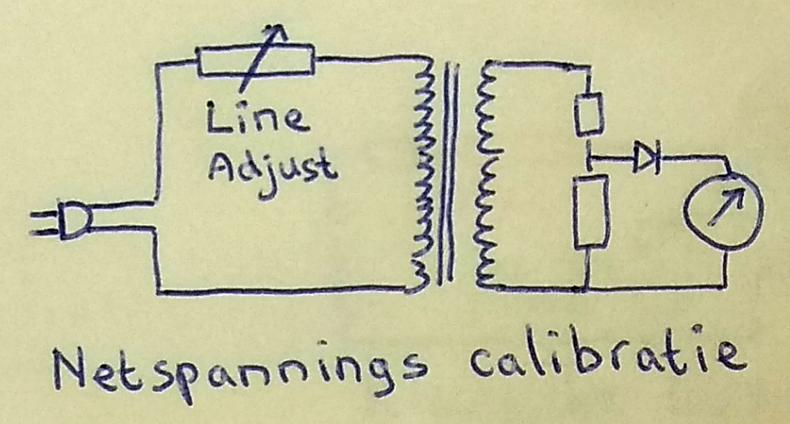 Line
Adjust
Netspannings calibratie